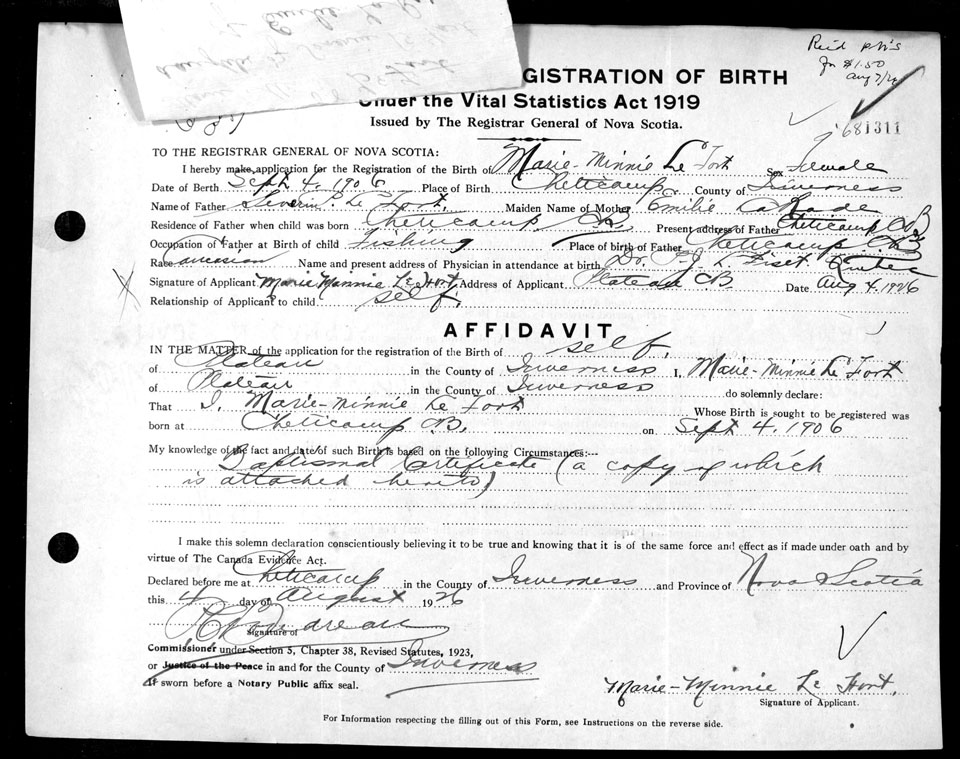 Under the Vital Statistics Act 1919
GISTRATION OF BIRTH
Issued by The Registrar General of Nova Scotia.
for $1.50
681311
TO THE REGISTRAR GENERAL OF NOVA SCOTIA:
I hereby make application for the Registration of the Birth of Marie-Minnie Le Fort Sex Female
Date of Birth Sept 4, 1906 Place of Birth Cheticamp County of Inverness
Name of Father Severin Le Fort, Maiden Name of Mother Emilie
Residence of Father when child was born Cheticamp CB Present address of Father Cheticamp CB
Occupation of Father at Birth of child Fishing Place of birth of Father Cheticamp CB
Race Caucasian Name and present address of Physician in attendance at birth Dr. Fiset Quebec
Signature of Applicant Marie Minnie Le Fort Address of Applicant Plateau CB Date Aug 4, 1926
Relationship of Applicant to child self,
AFFIDAVIT
IN THE MATTER of the application for the registration of the Birth of self,
of Plateau in the County of Inverness I, Marie-Minnie Le Fort
of Plateau in the County of Inverness do solemnly declare:
That I, Marie-Minnie Le Fort Whose Birth is sought to be registered was
born at Cheticamp CB. on Sept 4, 1906
My knowledge of the fact and date of such Birth is based on the following Circumstances:--
Baptismal Certificate (a copy of which
is attached hereto)
I make this solemn declaration conscientiously believing it to be true and knowing that it is of the same force and effect as if made under oath and by
virtue of The Canada Evidence Act.
Declared before me at Cheticamp in the County of Inverness and Province of Nova Scotia
this 4 day of August 1926
Signature of
Commissioner under Section 5, Chapter 38, Revised Statutes, 1923,
or Justice of the Peace in and for the County of Inverness
If sworn before a Notary Public affix seal.
Marie-Minnie Le Fort,
Signature of Applicant.
For Information respecting the filling out of this Form, see Instructions on the reverse side.